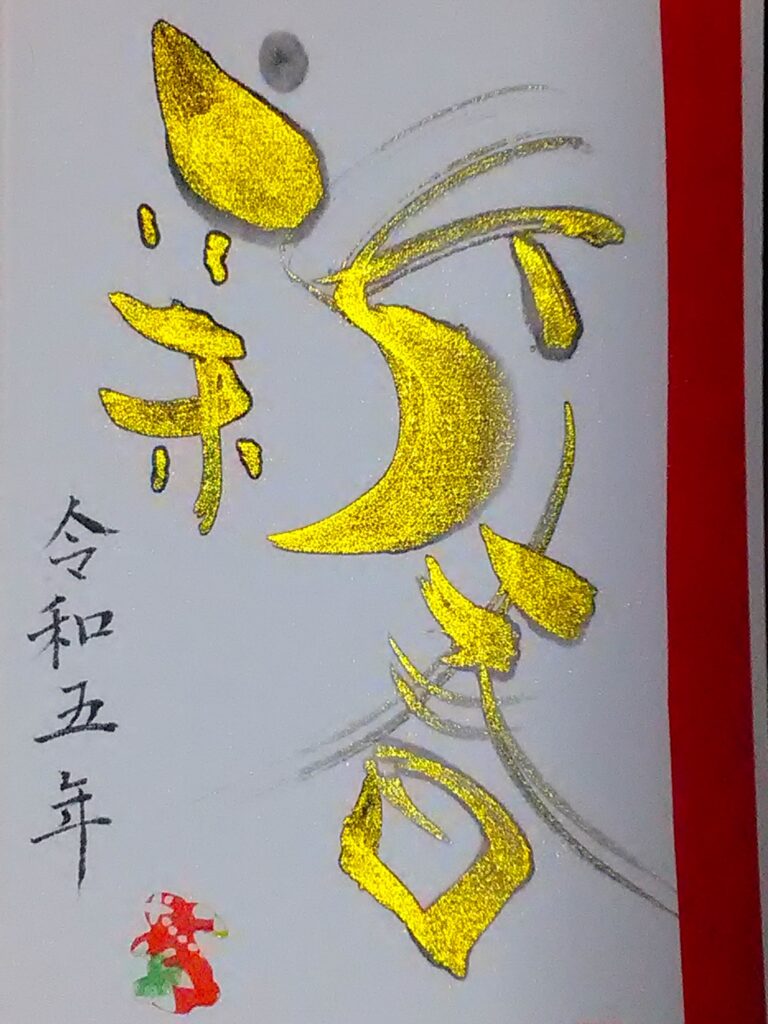 新春
令和五年